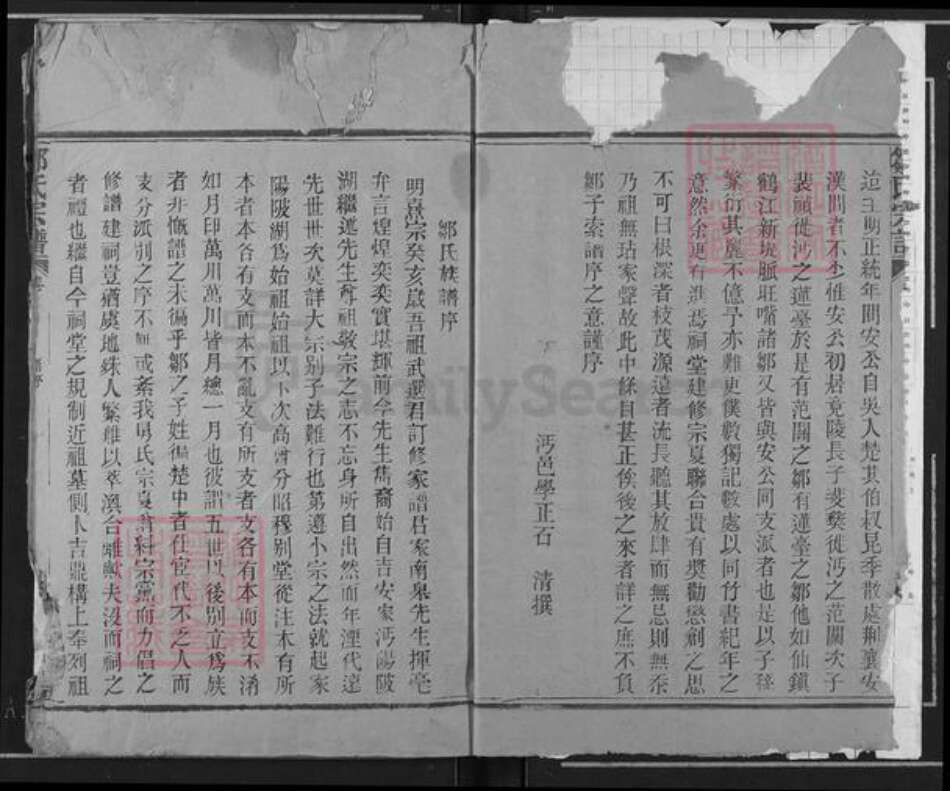 迨至明正統年間安公自吳入楚其伯叔昆季散處荆襄安
漢間者不少惟安公初居竟陵長子斐燮徙沔之范關次子
裴禎徙沔之蓮臺於是有范關之鄒有蓮臺之鄒他如仙鎮
鶴江新堤脈旺嘴諸鄒又皆與安公同支派者也是以子孫
繁衍其麗不億予亦難更僕數獨記數處以同竹書紀年之
意然余更有進焉祠堂建修宗夏聯合貴有獎勸懲創之思
不可曰根深者枝茂源遠者流長聽其放肆而無忌則無忝
乃祖無玷家聲故此中條目甚正俟後之來者詳之庶不負
鄒子索譜序之意謹序
沔邑學正石 清撰
鄒氏族譜序
明熹宗癸亥歲吾祖武選君訂修家譜吾家南皋先生揮毫
弁言煌煌奕奕實堪輝前今先生雋裔始自吉安家沔陽陂
湖繼述先生尊祖敬宗之志不忘身所自出然而年湮代遠
先世世次莫詳大宗别子法難行也第遵小宗之法就起家
陽陂湖爲始祖始祖以下次高曾分昭穆别堂從注本有所
本者本各有支而本不亂支有所支者支各有本而支不淆
如月印萬川萬川皆月總一月也彼謂五世以後别立爲族
者非慨譜之未徧乎鄒之子姓徧楚中者仕宦代不乏人而
支分派别之序不無或紊我男氏宗夏翁糾宗黨而力倡之
修譜建祠豈猶虞地殊人繁難以萃渙合離歟夫没而祠之
者禮也繼自今祠堂之規制近祖墓側卜吉鼎構上奉列祖
鄒氏宗譜